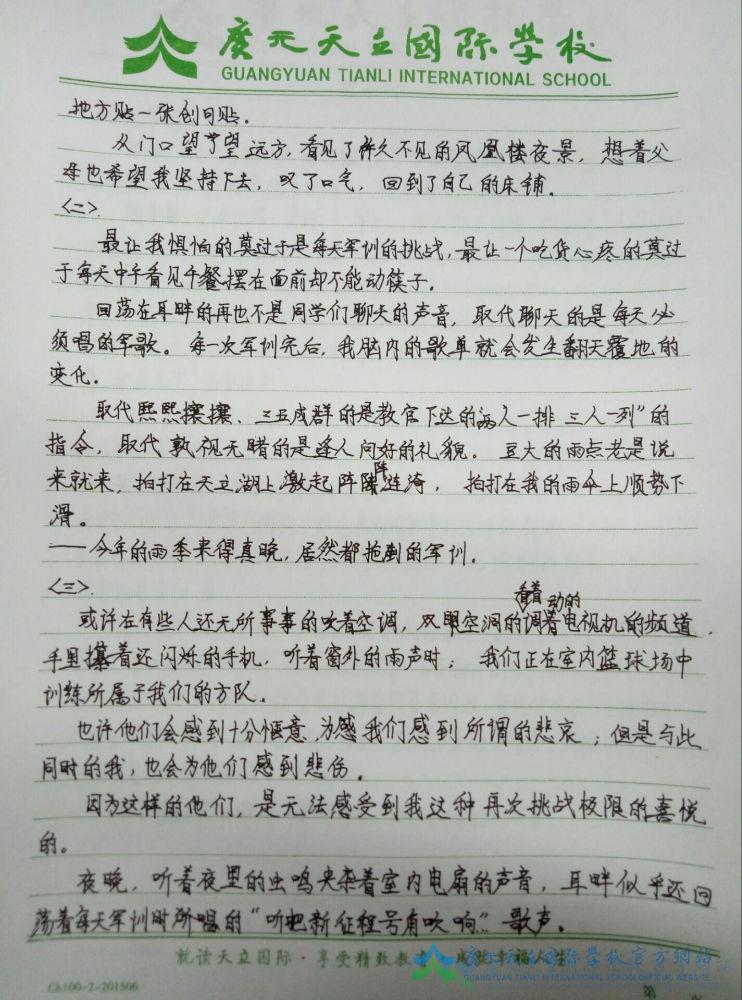 广元天立國际学校
GUANGYUAN TIANLI INTERNATIONAL SCHOOL
地方贴一张创可贴.
从门口望了望远方,看见了许久不见的凤凰楼夜景,想着父
母也希望我坚持下去,叹了口气,回到了自己的床铺.
<二>.
最让我惧怕的莫过于是每天军训的挑战,最让一个吃货心疼的莫过
于每天中午看见午餐摆在面前却不能动筷子.
回荡在耳畔的再也不是同学们聊天的声音,取代聊天的是每天必
须唱的军歌。每一次军训完后,我脑内的歌单就会发生翻天覆地的
变化.
取代熙熙攘攘、三五成群的是教官下达的"两人一排 三人一列"的
指令,取代孰视无睹的是逢人问好的礼貌。豆大的雨点老是说
来就来,拍打在天立湖上激起阵阵涟漪,拍打在我的雨伞上顺势下
滑。
——今年的雨季来得真晚,居然都拖到的军训.
<三>.
或许在有些人还无所事事的吹着空调,双眼空洞的看着调动的电视机的频道,
手里攥着还闪烁的手机,听着窗外的雨声时;我们正在室内篮球场中
训练所属于我们的方队.
也许他们会感到十分惬意,为感我们感到所谓的悲哀;但是与此
同时的我,也会为他们感到悲伤.
因为这样的他们,是无法感受到我这种再次挑战极限的喜悦
的。
夜晚,听着夜里的虫鸣夹杂着室内电扇的声音,耳畔似乎还回
荡着每天军训时所唱的"听把新征程号角吹响"歌声。
就读天立国际·享受精致教育
广元天立国际学校官方網站
GUANGYUAN TIANLI INTERNATIONAL SCHOOL OFFICIAL WEBSITE
Ch100-2-201506